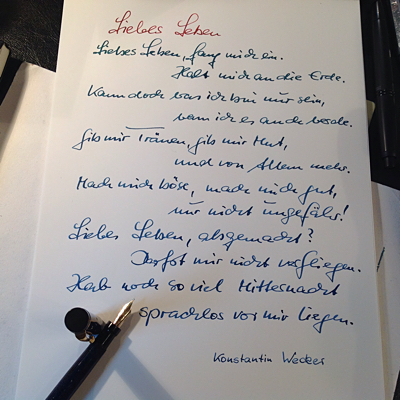 Liebes Leben
Liebes Leben, fang mich ein.
Halt mich an die Erde.
Kann doch was ich bin nur sein,
wenn ich es auch werde.
Gib mir Tränen, gib mir Mut,
und von Allem mehr.
Mach mich böse, mach mich gut,
nur nicht ungefähr!
Liebes Leben, abgemacht?
Darfst mir nicht verfliegen.
Hab noch so viel Mitternacht
sprachlos vor mir liegen.
Konstantin Wecker